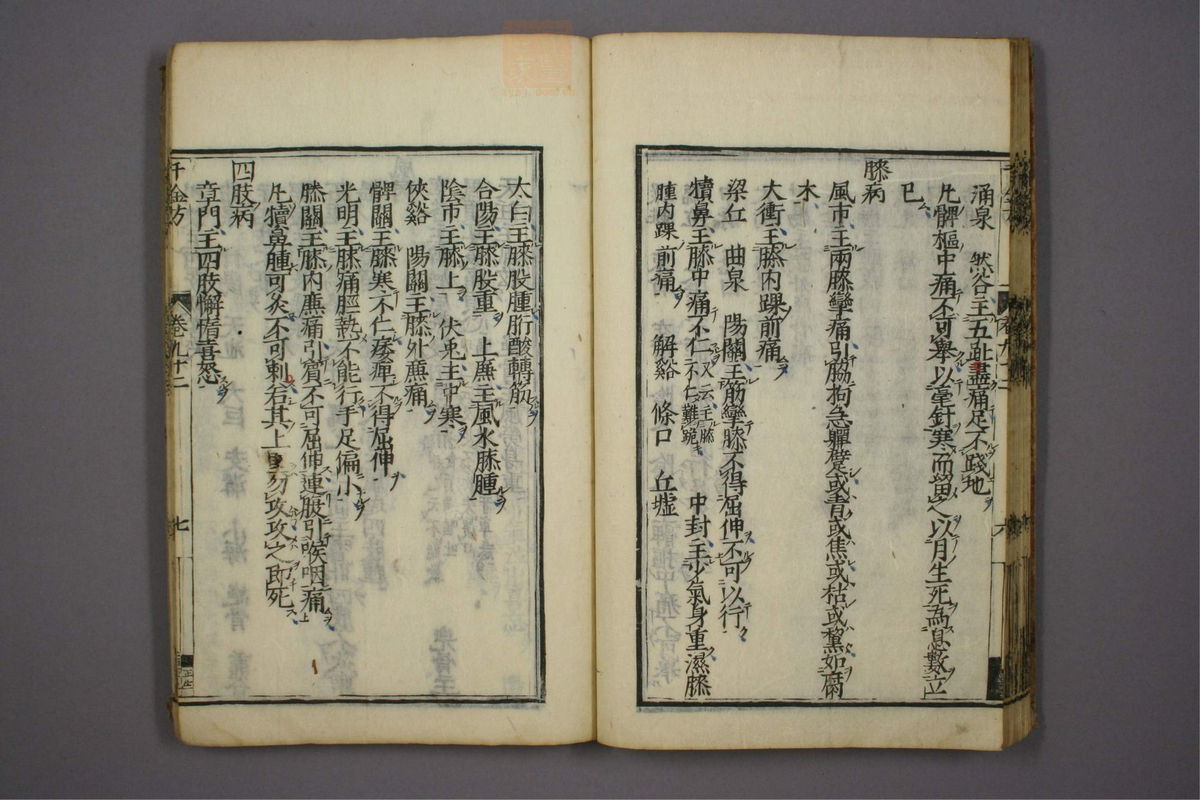 涌泉 然谷主五趾盡痛足不踐地
凡髀樞中痛不可舉以毫針寒而留之以月生死爲息數立
已
膝病
風市主兩膝攣痛引脇拘急躄或青或焦或枯或黧如腐
木
大衝主膝内踝前痛
梁丘 曲泉 陽關主筋攣膝不得屈伸不可以行
犢鼻主膝中痛不仁又云主膝不仁難跪 中封主少氣身重濕膝
腫内踝前痛 解谿 條口 丘墟
太白主膝股腫胻酸轉筋
合陽主膝股重 上廉主風水膝腫
陰市主膝上 伏兎主中寒
俠谿 陽關主膝外廉痛
髀關主膝寒不仁痿痺不得屈伸
光明主膝痛脛熱不能行手足偏小
膝關主膝内廉痛引臏不可屈伸連腹引喉咽痛
凡犢鼻腫可灸不可刺若其上堅勿攻攻之即死
四肢病
章門主四肢懈惰喜怒
千金方
卷九十二
七